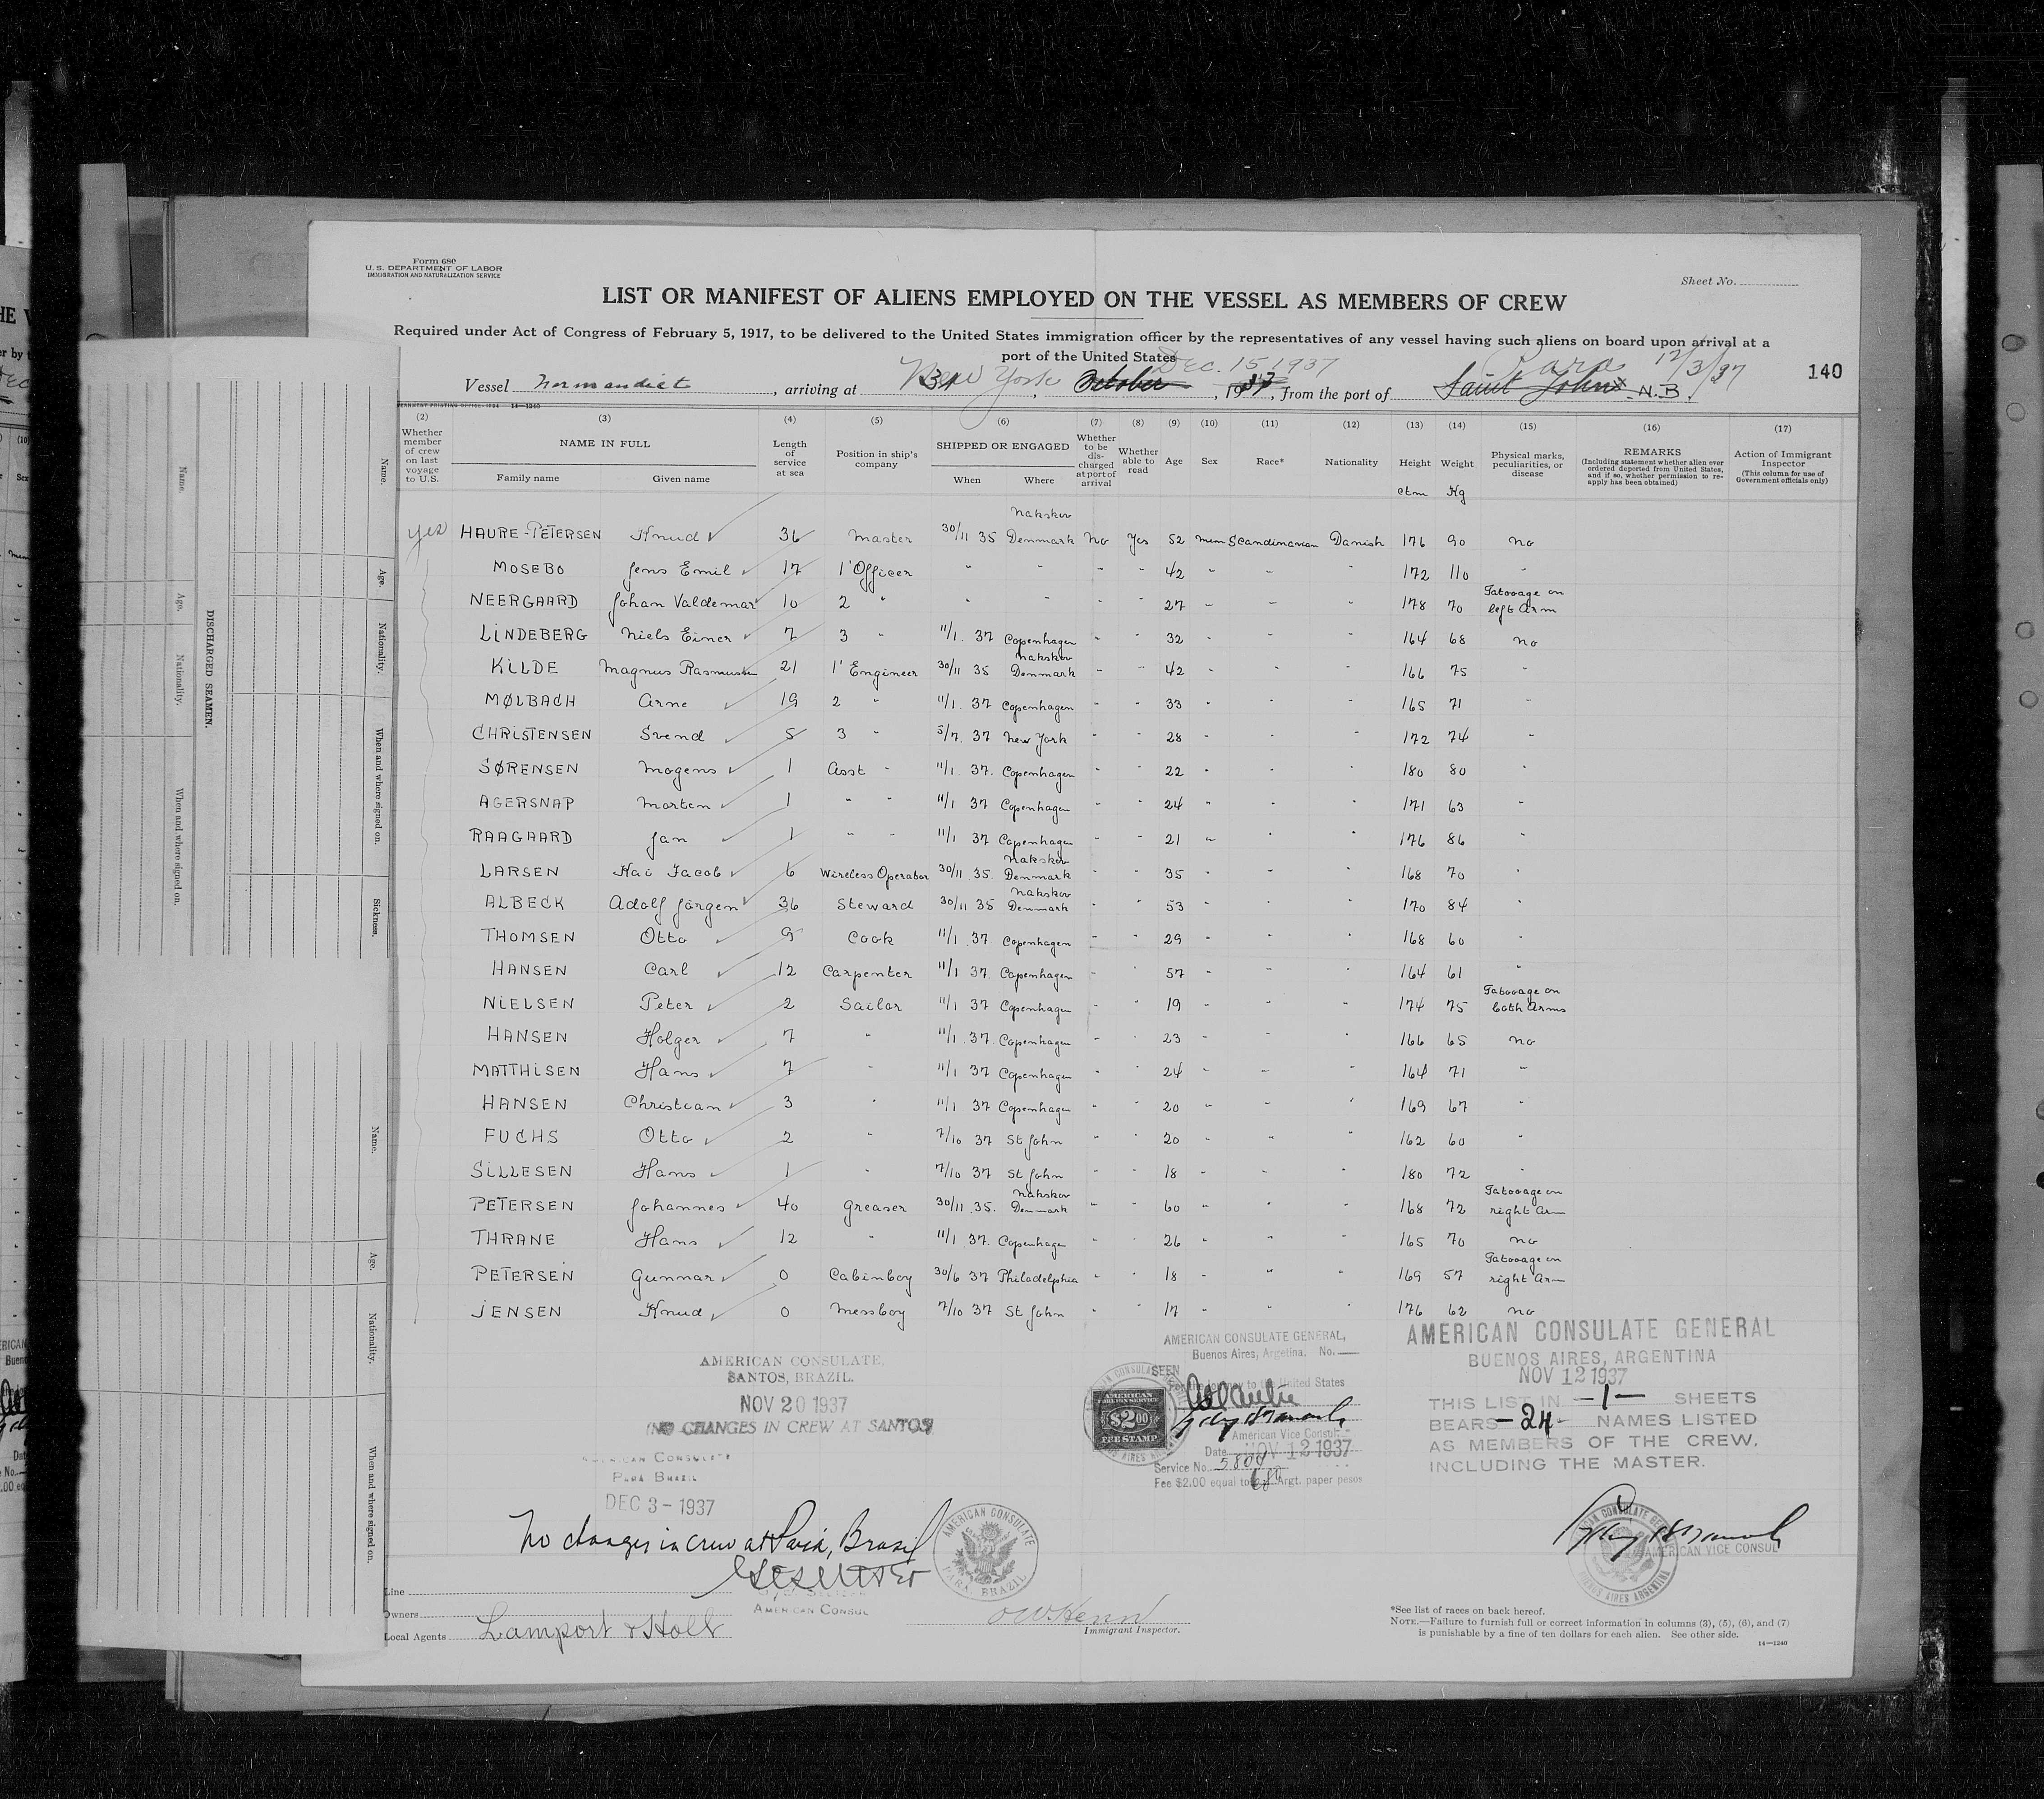 Form 680
U. S. DEPARTMENT OF LABOR
IMMIGRATION AND NATURALIZATION SERVICE
Sheet No.
LIST OR MANIFEST OF ALIENS EMPLOYED ON THE VESSEL AS MEMBERS OF CREW
Required under Act of Congress of February 5, 1917, to be delivered to the United States immigration officer by the representatives of any vessel having such aliens on board upon arrival at a
port of the United States
Dec. 15 1937
Para 12/3/37
140
Vessel Normandiet, arriving at New York, October, 1937, from the port of Saint John N.B.
14—1240
(2) (3) (4) (5) (6) (7) (8) (9) (10) (11) (12) (13) (14) (15) (16) (17)
Whether member of crew on last voyage to U.S.
NAME IN FULL
Family name Given name
Length of service at sea
Position in ship's company
SHIPPED OR ENGAGED
When Where
Whether to be discharged at port of arrival
Whether able to read
Age Sex Race* Nationality Height Weight
Physical marks, peculiarities, or disease
REMARKS
(Including statement whether alien ever ordered deported from United States, and if so, whether permission to re-apply has been obtained)
Action of Immigrant Inspector
(This column for use of Government officials only)
ctm Kg
yes HAURE-PETERSEN Knud 36 Master 30/11 35 Nakskov Denmark No Yes 52 Scandinavian Danish 176 90 no
MOSEBO Jens Emil 17 1' Officer " " " " " 42 " " " 172 110 "
NEERGAARD Johan Valdemar 10 2 " " " " " 27 " " " 178 70 Tatooage on left Arm
LINDEBERG Niels Einer 7 3 " 11/1. 37 Copenhagen " " 32 " " " 164 68 no
KILDE Magnus Rasmussen 21 1' Engineer 30/11 35 Nakskov Denmark " " 42 " " " 166 75 "
MØLBACH Arne 19 2 " 11/1. 37 Copenhagen " " 33 " " " 165 71 "
CHRISTENSEN Svend 5 3 " 5/7. 37 New York " " 28 " " " 172 74 "
SØRENSEN Mogens 1 Asst " 11/1. 37. Copenhagen " " 22 " " " 180 80 "
AGERSNAP Morten 1 " " 11/1 37 Copenhagen " " 24 " " " 171 63 "
RAAGAARD Jan 1 " " 11/1 37 Copenhagen " " 21 " " " 176 86 "
LARSEN Kai Jacob 6 Wireless Operator 30/11 35. Nakskov Denmark " " 35 " " " 168 70 "
ALBECK Adolf Jørgen 36 Steward 30/11 35 Nakskov Denmark " " 53 " " " 170 84 "
THOMSEN Otto 9 Cook 11/1. 37 Copenhagen " " 29 " " " 168 60 "
HANSEN Carl 12 Carpenter 11/1 37. Copenhagen " " 57 " " " 164 61 "
NIELSEN Peter 2 Sailor 11/1 37 Copenhagen " " 19 " " " 174 75 Tatooage on both Arms
HANSEN Holger 7 " 11/1. 37. Copenhagen " " 23 " " " 166 65 no
MATTHISEN Hans 7 " 11/1 37 Copenhagen " " 24 " " " 164 71 "
HANSEN Christian 3 " 11/1 37 Copenhagen " " 20 " " " 169 67 "
FUCHS Otto 2 " 7/10 37 St John " " 20 " " " 162 60 "
SILLESEN Hans 1 " 7/10 37 St John " " 18 " " " 180 72 "
PETERSEN Johannes 40 Greaser 30/11. 35. Nakskov Denmark " " 60 " " " 168 72 Tatooage on right Arm
THRANE Hans 12 " 11/1. 37. Copenhagen " " 26 " " " 165 70 no
PETERSEN Gunnar 0 Cabinboy 30/6 37 Philadelphia " " 18 " " " 169 57 Tatooage on right Arm
JENSEN Knud 0 Messboy 7/10 37 St John " " 17 " " " 176 62 no
AMERICAN CONSULATE,
SANTOS, BRAZIL.
NOV 20 1937
NO CHANGES IN CREW AT SANTOS
AMERICAN CONSULATE
PARA BRAZIL
DEC 3 - 1937
No changes in crew at Pará, Brazil
AMERICAN CONSUL
AMERICAN CONSULATE
PARA, BRAZIL
AMERICAN CONSULATE GENERAL,
Buenos Aires, Argetina. No.
SEEN
For the journey to the United States
AMERICAN
FOREIGN SERVICE
$2.00
FEE STAMP
American Vice Consul
Date NOV 12 1937
Service No. 5804
Fee $2.00 equal to Argt. paper pesos
AMERICAN CONSULATE GENERAL
BUENOS AIRES, ARGENTINA
NOV 12 1937
THIS LIST IN -1- SHEETS
BEARS -24- NAMES LISTED
AS MEMBERS OF THE CREW.
INCLUDING THE MASTER.
AMERICAN VICE CONSUL
BUENOS AIRES ARGENTINA
Line
Owners
Local Agents Lamport & Holt
Immigrant Inspector.
*See list of races on back hereof.
NOTE.—Failure to furnish full or correct information in columns (3), (5), (6), and (7)
is punishable by a fine of ten dollars for each alien. See other side.
14—1240
DISCHARGED SEAMEN.
Name. Age. Nationality. When and where signed on. Sickness.
Name. Age. Nationality. When and where signed on.
Name. Age. Nationality. When and where signed on.